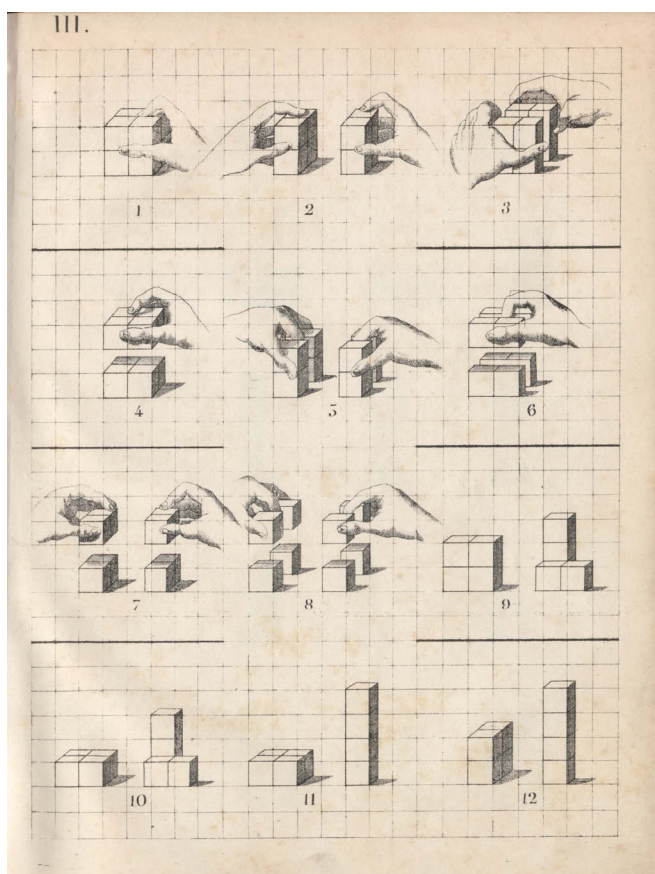 III.
1 2 3
4 5 6
7 8 9
10 11 12